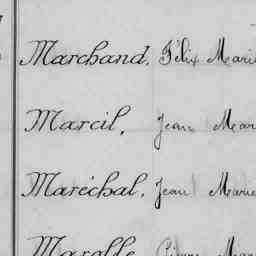 Marchand, Félix Marie
Marcil, Jean Mar
Maréchal, Jean Marie
Marolle, Pierre Mar